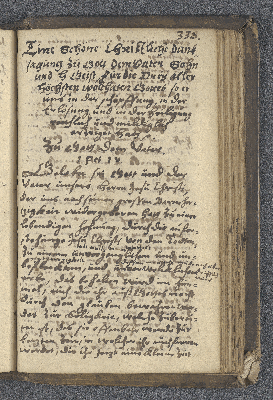 332.
Eine Schöne Christliche dank
sagung zu Gott dem Vater Sohn
und H Geist für die Drey aller
höchsten wolthaten Gottes so er
uns in der schöpffung, in der
Erlösung und in der heiligung
erzeiget hat
Zu Gott dem Vater.
1 Pet 1 V
Gelobet sey Gott und der
Vater unsers Herren Jesu Christi,
der uns nach seiner grossen Barmher-
tzigkeit widergeboren hat zu einer
lebendigen hofnung, durch die aufer-
stehung Jesu Christi von den Todten,
Zu einem unvergenglichen und un-
befleckten, und
das behalten wird im him-
mel, euch die ihr aus Gottes macht
durch den glauben bewahret wer-
det zur Seligkeit, welche
ist, das sie offenbar werde zur
letzten Zeit, in welcher ihr euch frewen
werdet, die ihr jetzt eine kleine zeit